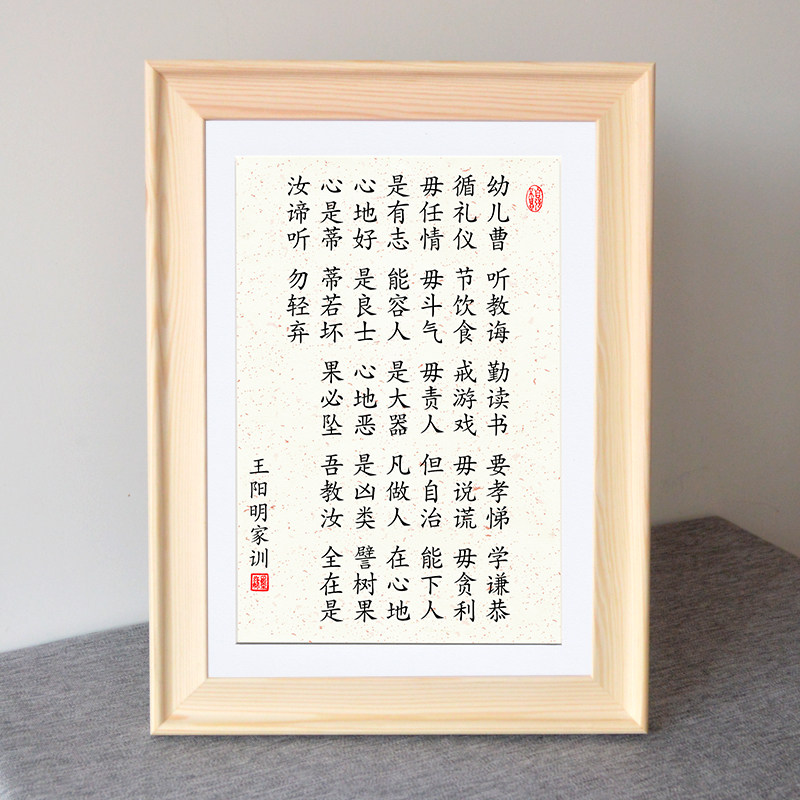 幼儿曹 听教诲 勤读书 要孝悌 学谦恭
循礼仪 节饮食 戒游戏 毋说谎 毋贪利
毋任情 毋斗气 毋责人 但自治 能下人
是有志 能容人 是大器 凡做人 在心地
心地好 是良士 心地恶 是凶类 譬树果
心是蒂 蒂若坏 果必坠 吾教汝 全在是
汝谛听 勿轻弃
王阳明家训